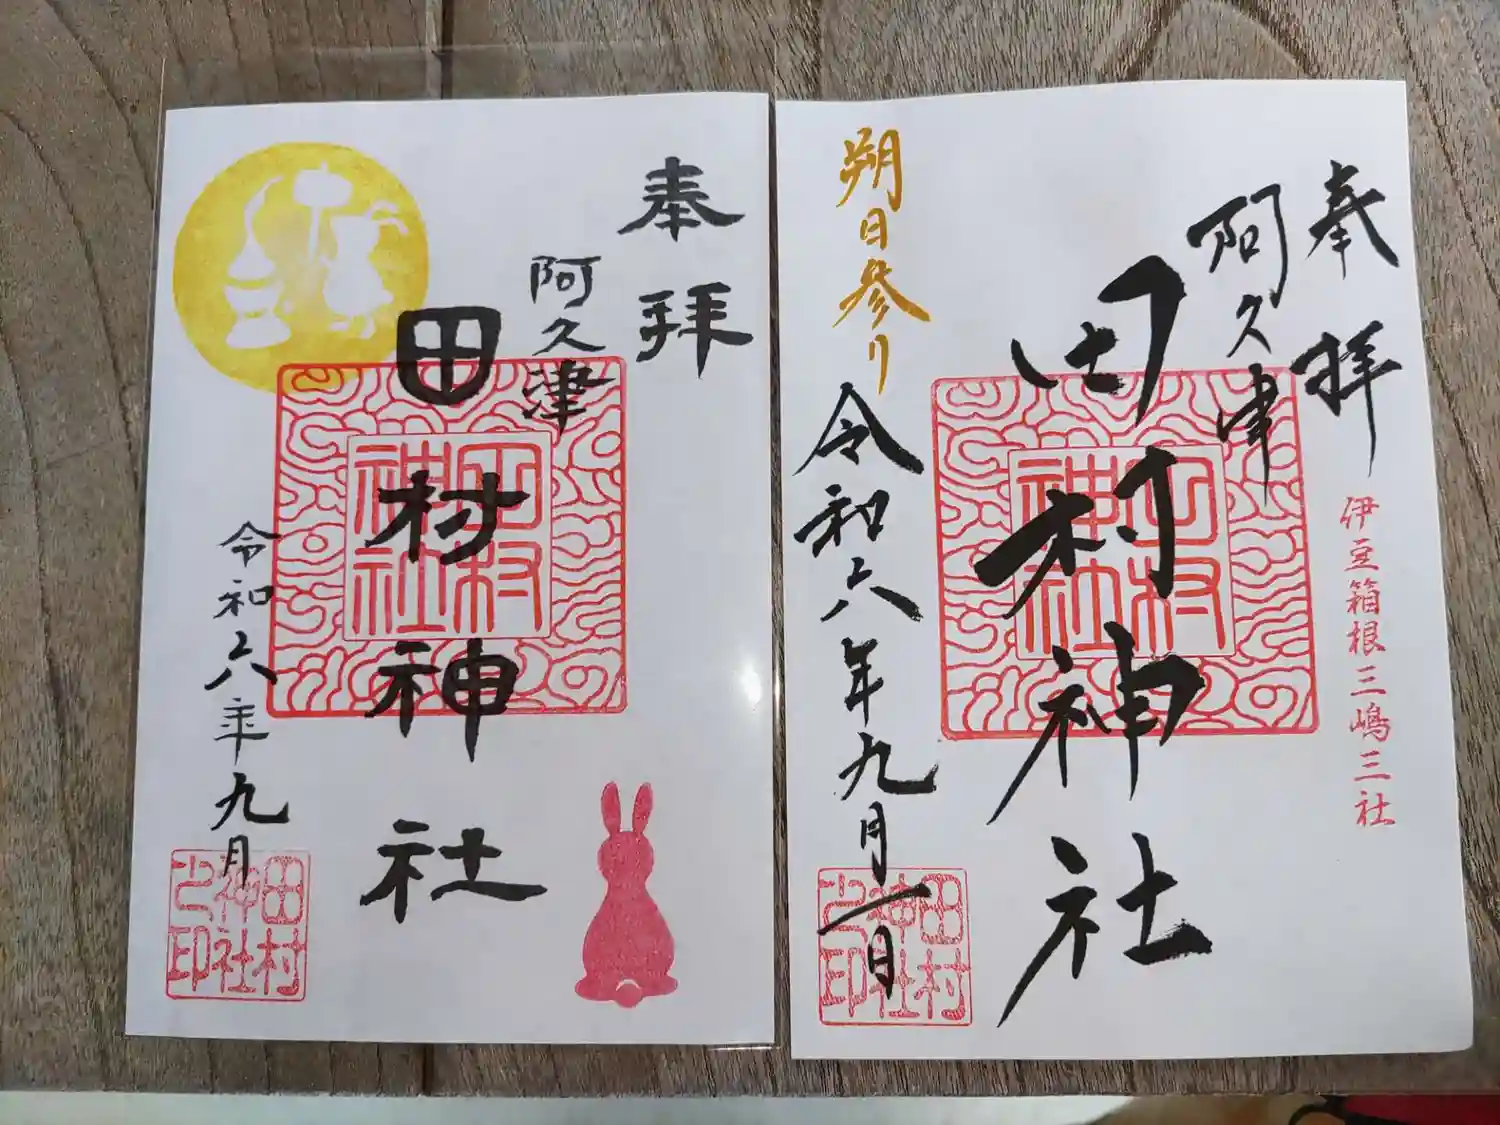 奉拝
阿久津
田村神社
令和六年九月
田村
神社
田村
神社
之印
奉拝
伊豆箱根三嶋三社
阿久津
田村神社
朔日参り
令和六年九月一日
田村
神社
田村
神社
之印